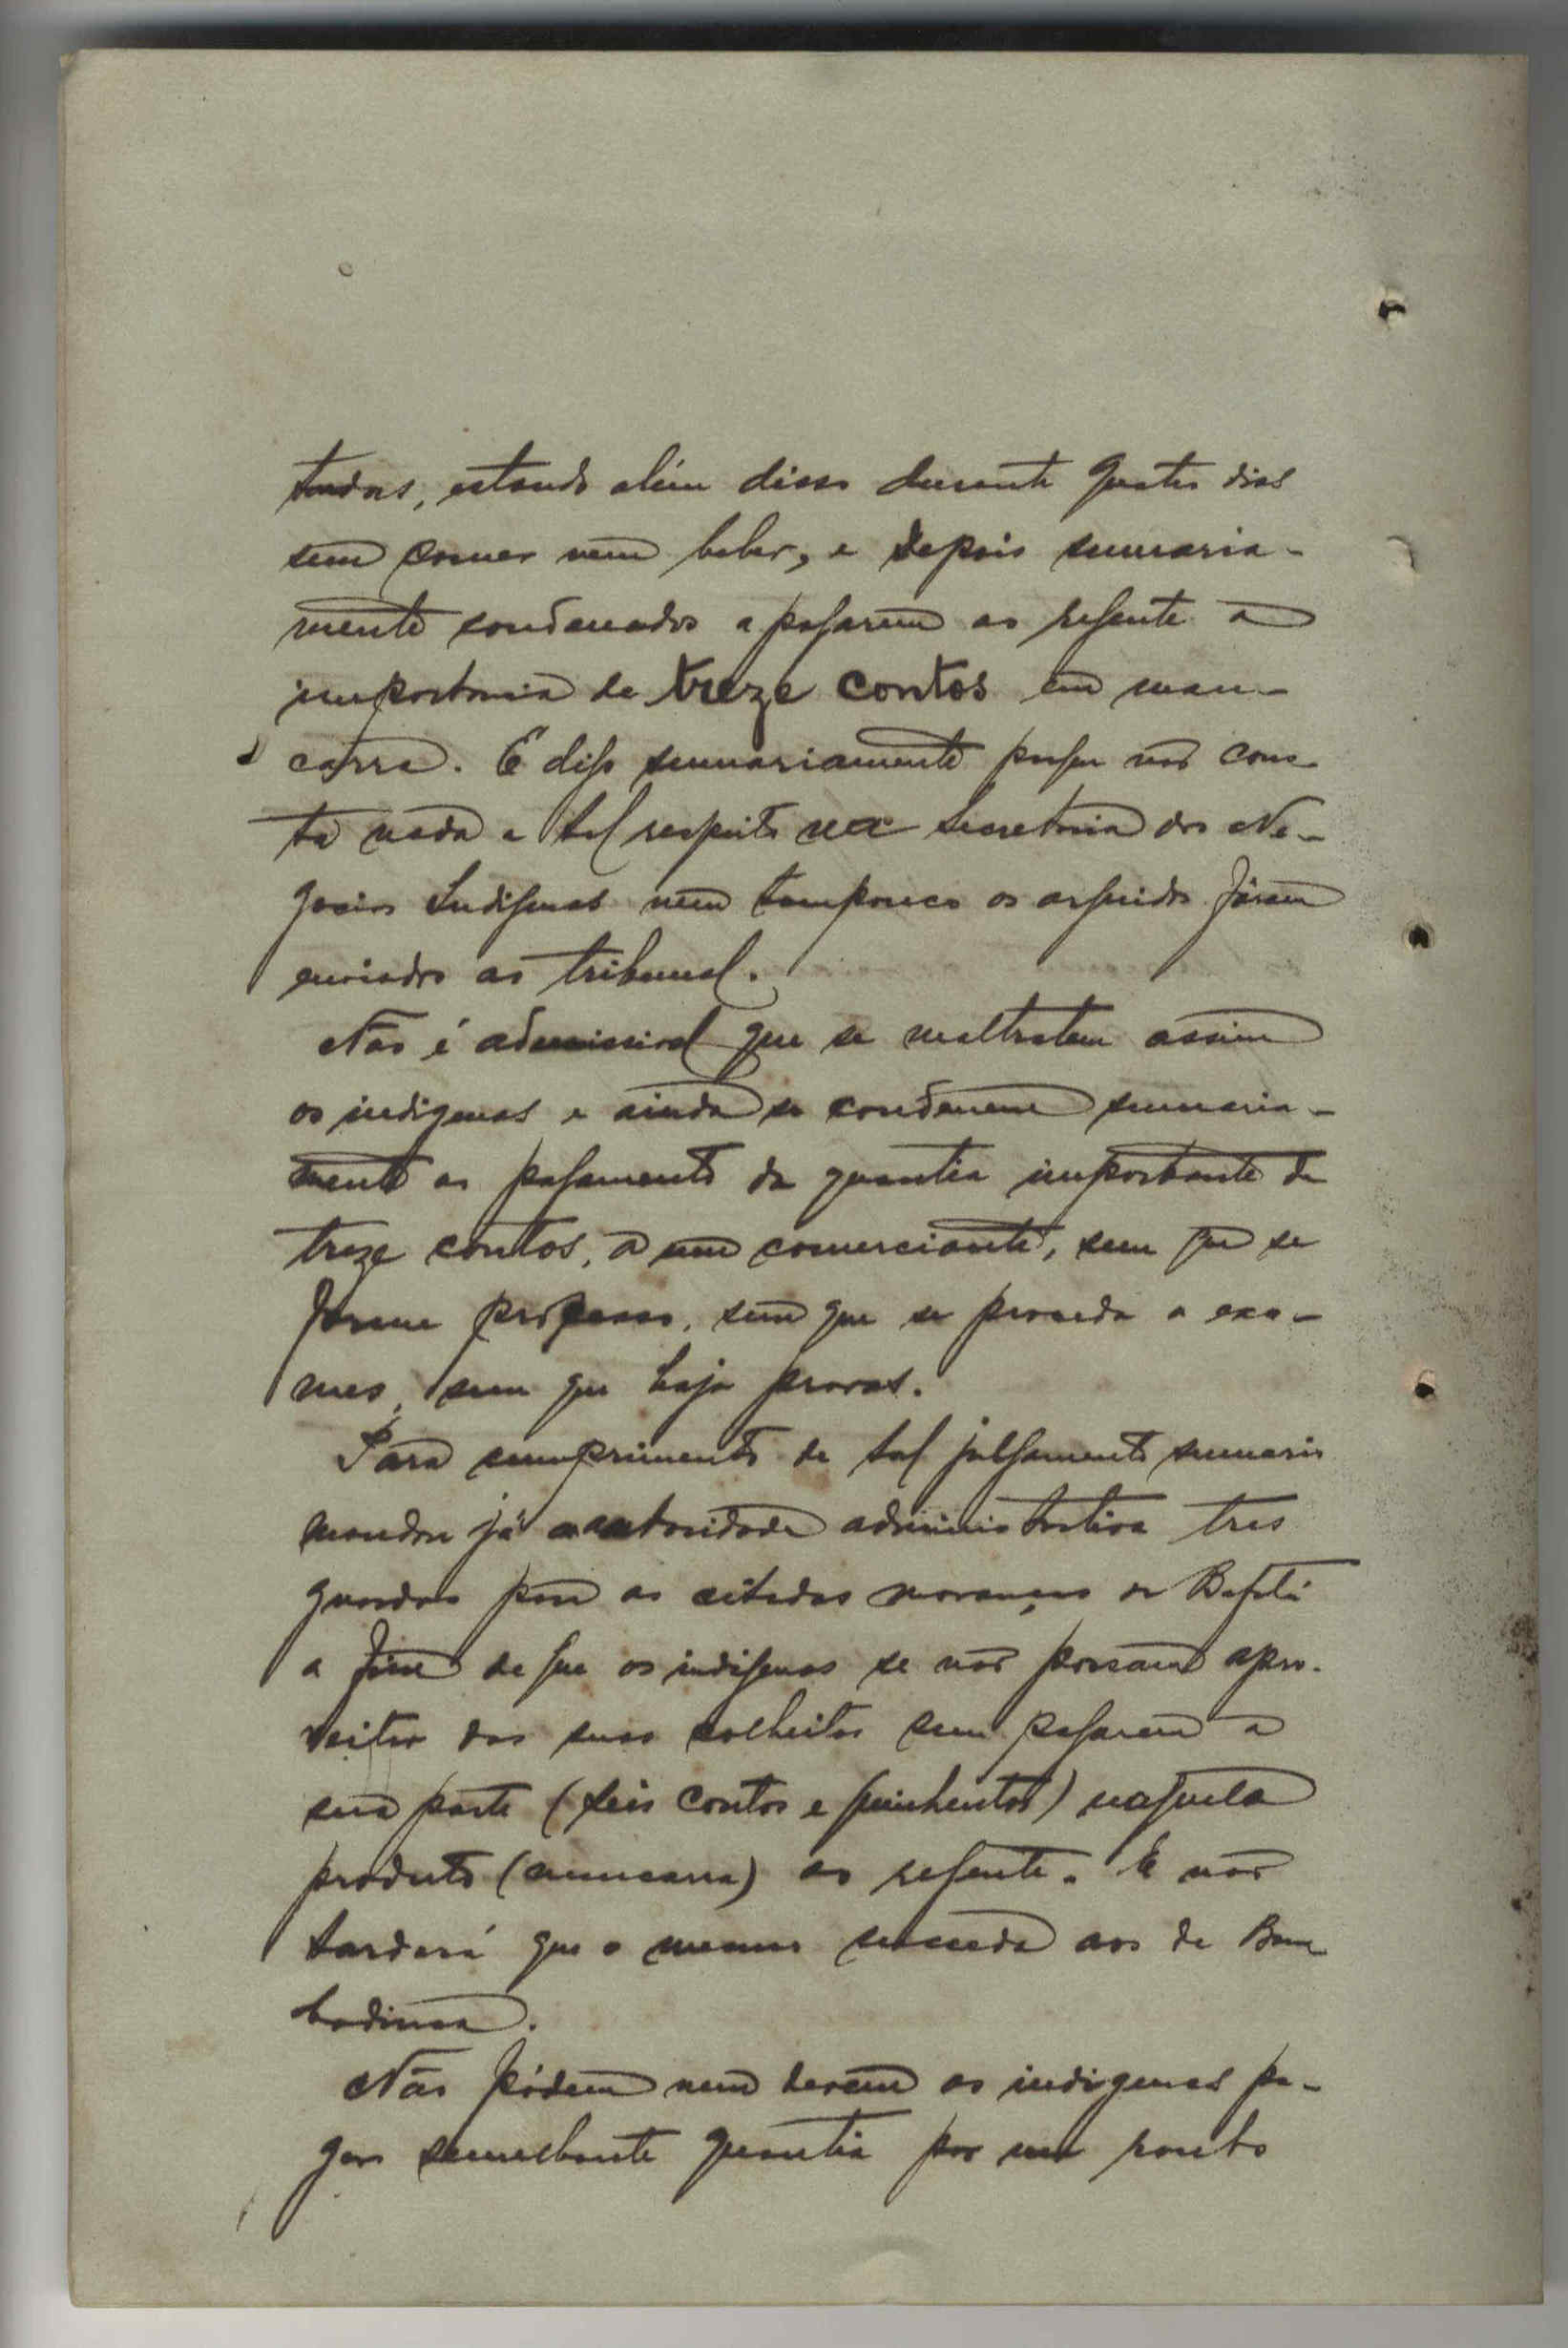 tados, estando além disso durante quatro dias
sem comer nem beber, e depois sumaria-
mente condenados a pagarem ao regente a
importancia de treze contos em man-
carra. E digo sumariamente porque não cons-
ta nada a tal respeito na Secretaria dos Ne-
gocios Indigenas nem tampouco os arguidos fôram
enviados ao tribunal.
Não é admissivel que se maltratem assim
os indigenas e ainda se condenem sumaria-
mente ao pagamento da quantia importante de
treze contos, a um comerciante, sem que se
forme processo, sem que se proceda a exa-
mes, sem que haja provas.
Para cumprimento de tal julgamento sumario
mandou já a autoridade administrativa tres
guardas para as citadas moranças de Bafatá
a fim de que os indigenas se não possam apro-
veitar das suas colheitas sem pagarem a
sua parte (seis contos e quinhentos) naquela
produto (mancarra) ao regente. E não
tardará que o mesmo suceda aos de Bam
badinca.
Não pódem nem devem os indigenas pa-
gar semelhante quantia por um roubo